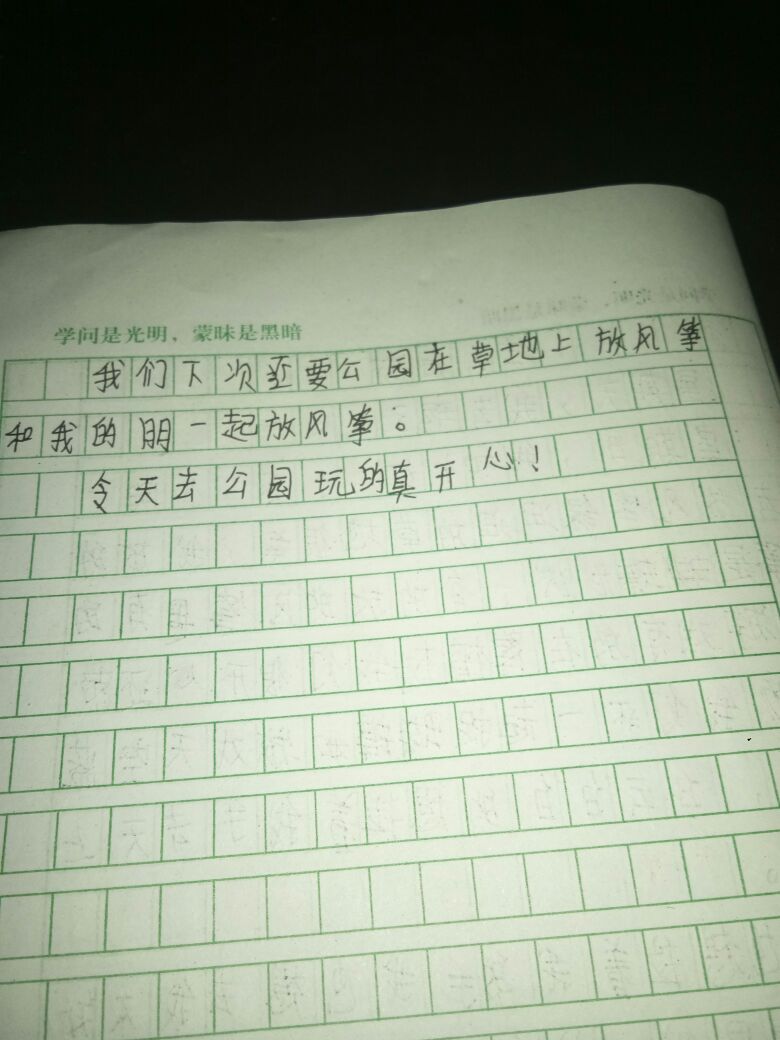 学问是光明，蒙昧是黑暗
我们下次还要公园在草地上放风筝
和我的朋一起放风筝。
今天去公园玩的真开心！